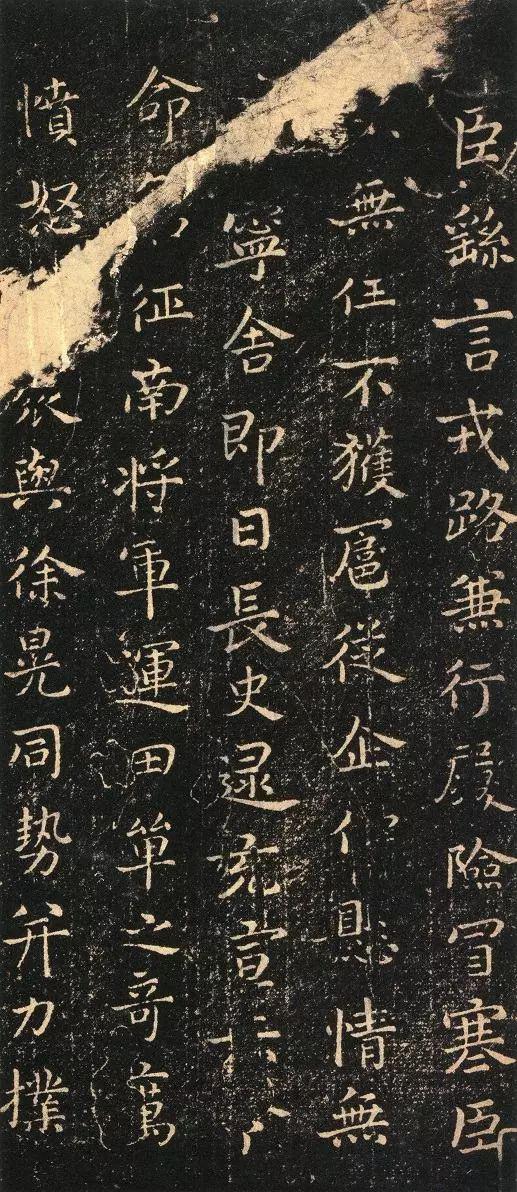 臣繇言戎路兼行履險冒寒臣
無任不獲扈從企仰懸情無
寧舍即日長史逯充宣示
命征南将軍運田單之奇厲
憤怒眾與徐晃同勢并力撲